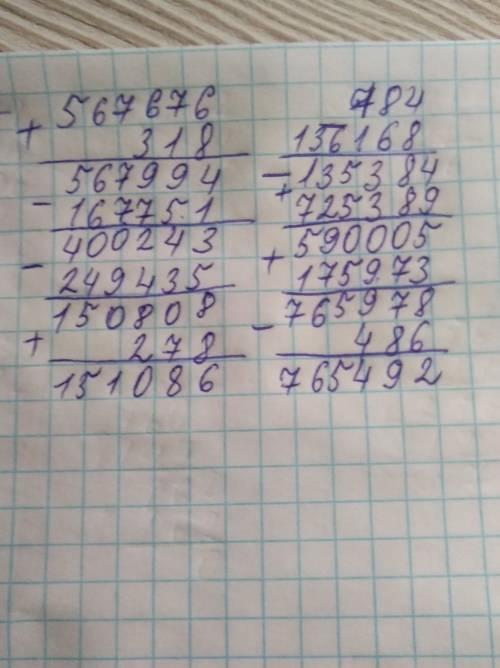 + 567676
318
567994
- 167751
400243
- 249435
150808
+ 278
151086
784
136168
-135384
+ 725389
590005
+ 175973
765978
- 486
765492